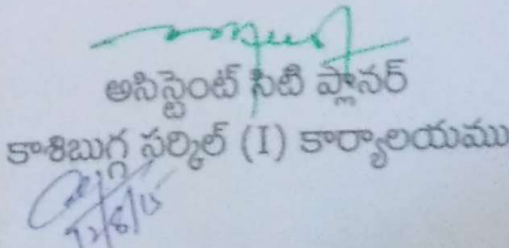 అసిస్టెంట్ సిటి ప్లానర్
కాశిబుగ్గ సర్కిల్ (I) కార్యాలయము
12/8/15